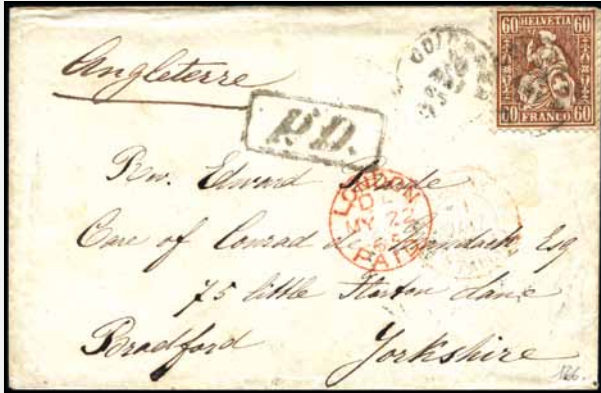 60 HELVETIA 60
60 FRANCO 60
Angleterre
P.D.
Rev. Edward
LONDON
MY 22
PAID
Care of Conrad de Esq
75 little Horton Lane
Bradford Yorkshire
166.